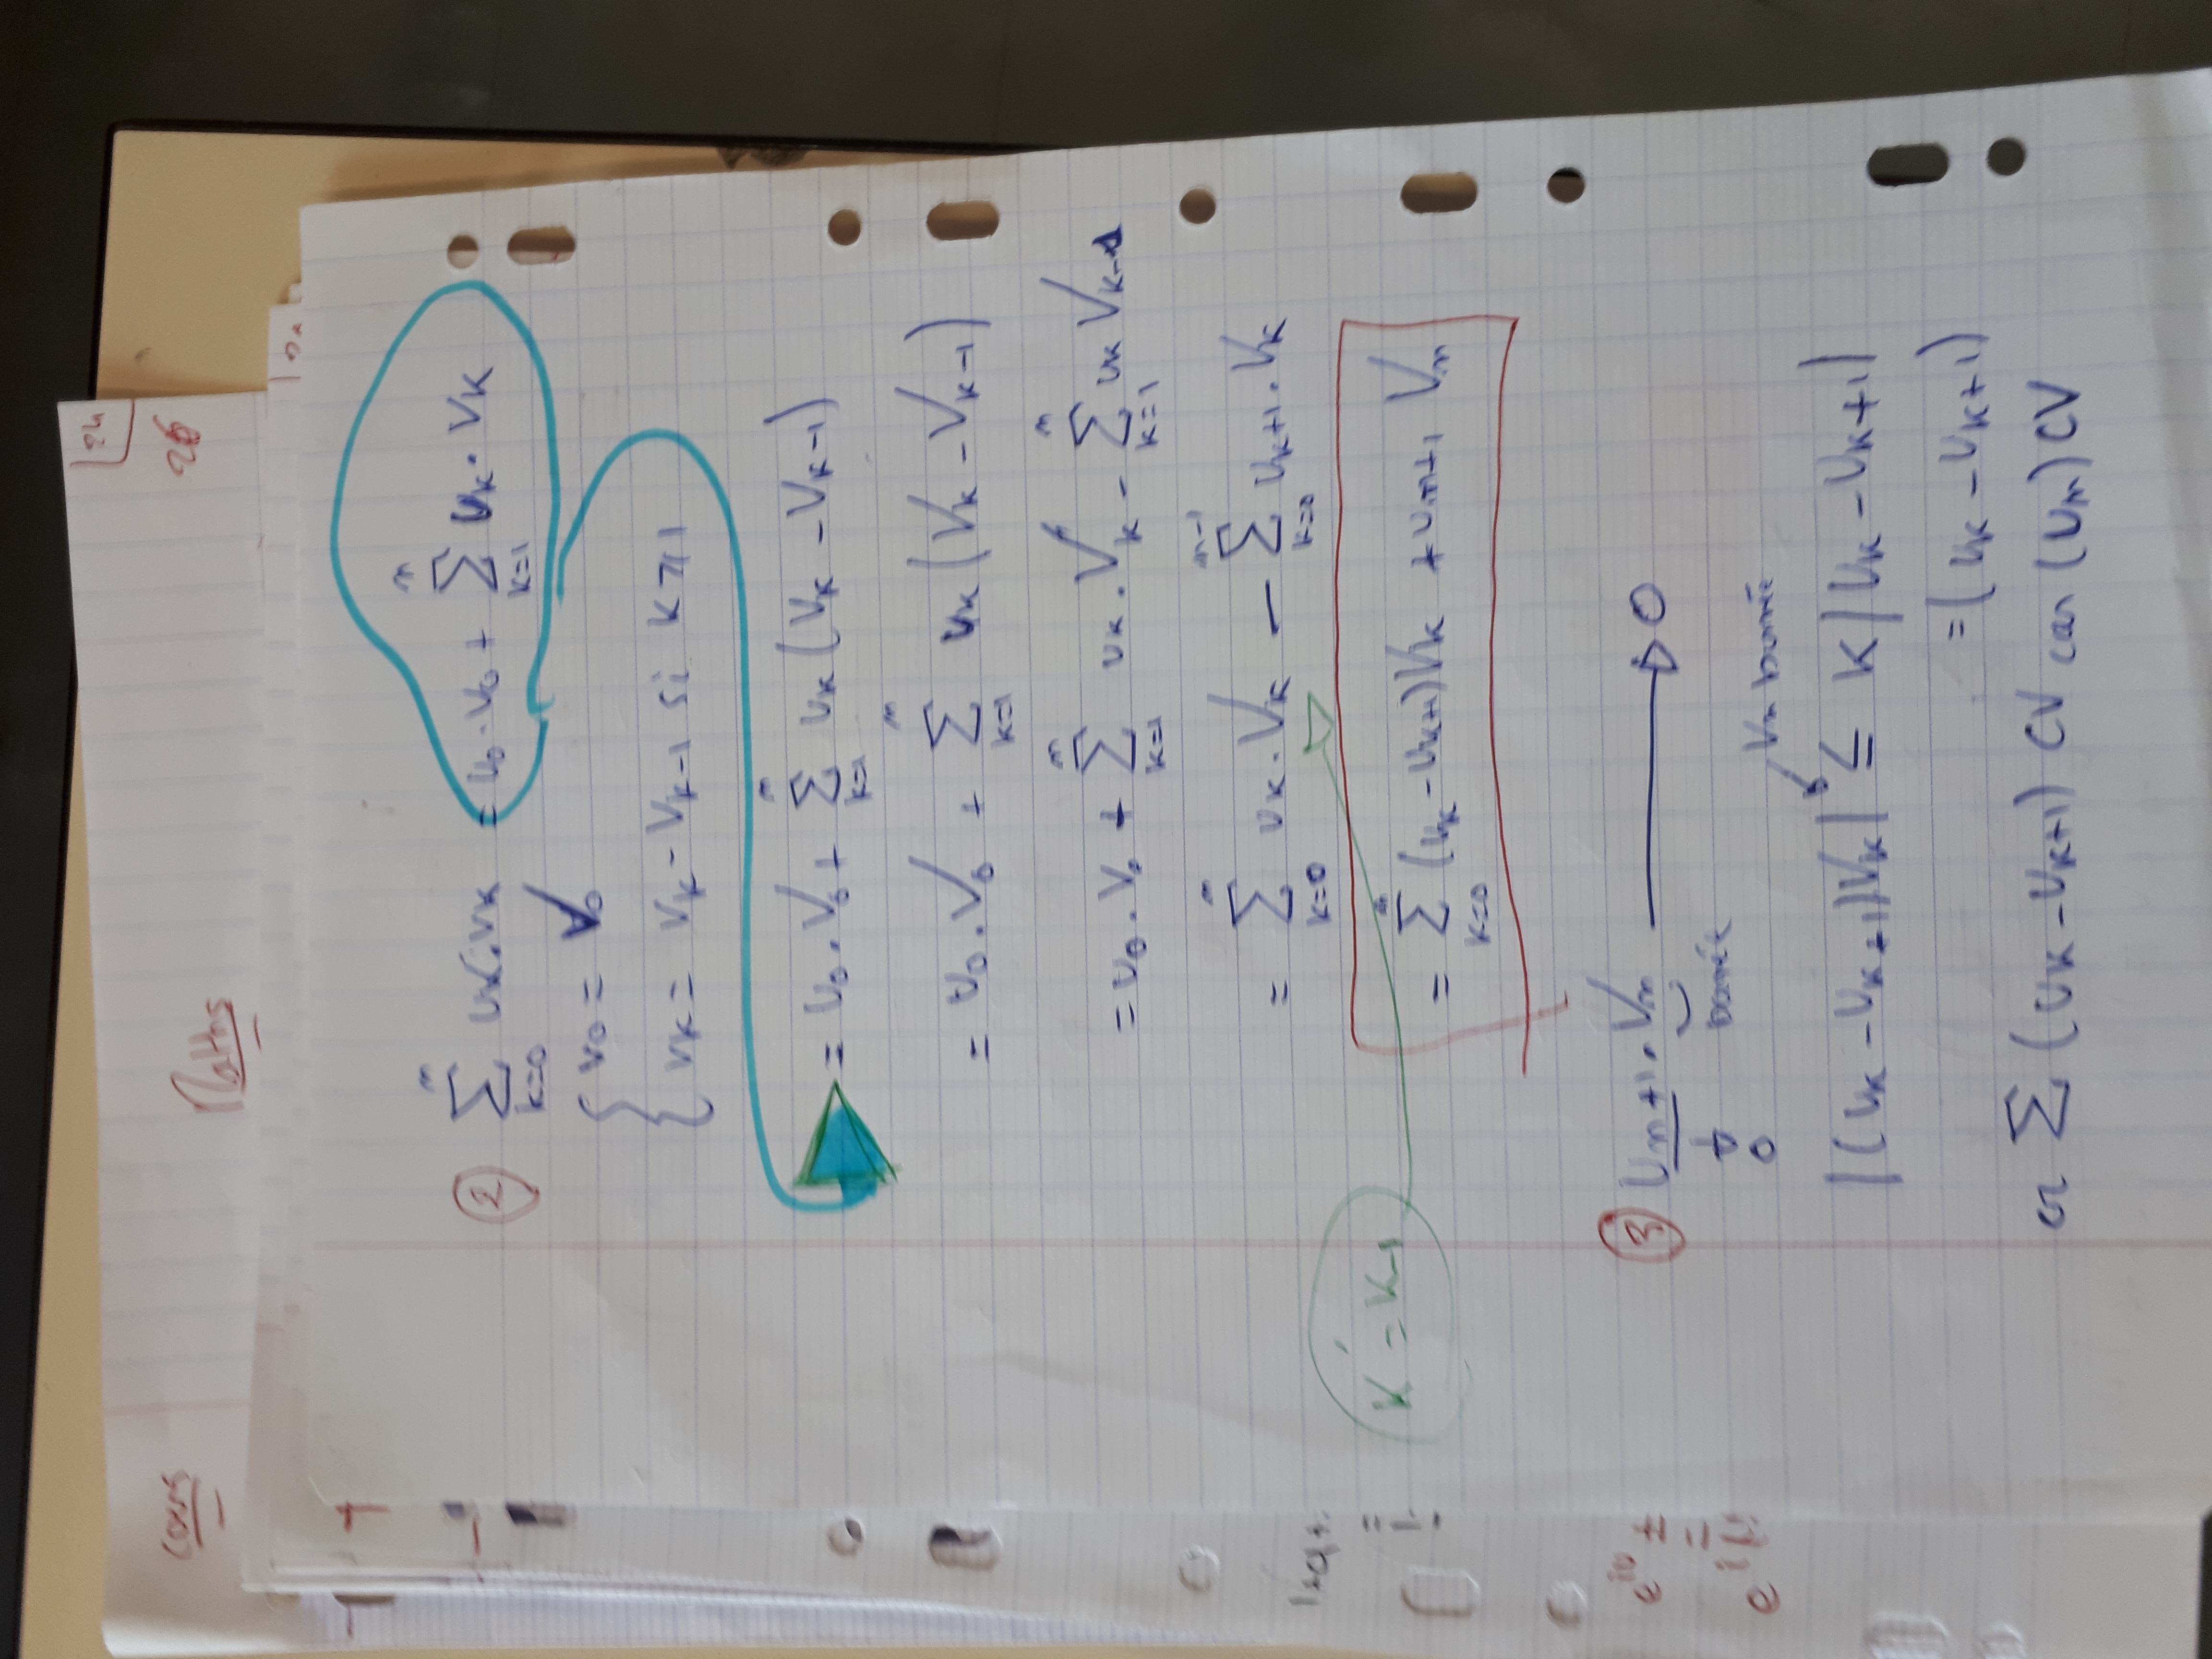 Cours Maths 24
26
② ∑_{k=0}^{n} uk.vk = u0.v0 + ∑_{k=1}^{n} uk.vk
{ v0 = V0
vk = Vk - Vk-1 si k ⩾ 1
= u0.V0 + ∑_{k=1}^{n} uk (Vk - Vk-1)
= u0.V0 + ∑_{k=1}^{n} uk (Vk - Vk-1)
= u0.V0 + ∑_{k=1}^{n} uk.Vk - ∑_{k=1}^{n} uk Vk-1
= ∑_{k=0}^{n} uk.Vk - ∑_{k=0}^{n-1} uk+1.Vk
K' = K-1
= ∑_{k=0}^{n} (uk - uk+1)Vk + un+1 Vn
③ Un+1.Vn → 0
↓ bornée
0
Vn bornée
|(uk - uk+1)Vk| ≤ K|uk - uk+1|
= (uk - uk+1)
or ∑ (uk - uk+1) CV car (Un) CV